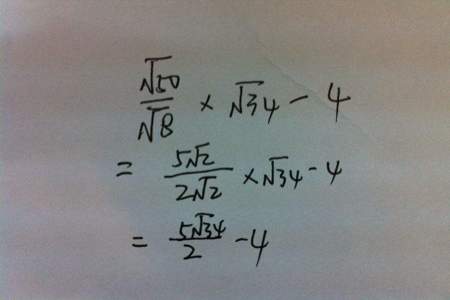 √50/√8 × √34 - 4
= 5√2/2√2 × √34 - 4
= 5√34/2 - 4